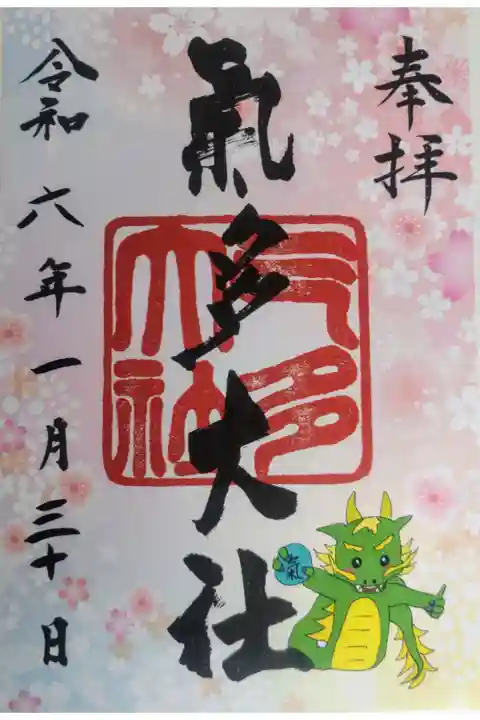 奉拝
氣多大社
气多
大社
令和六年一月三十日
氣